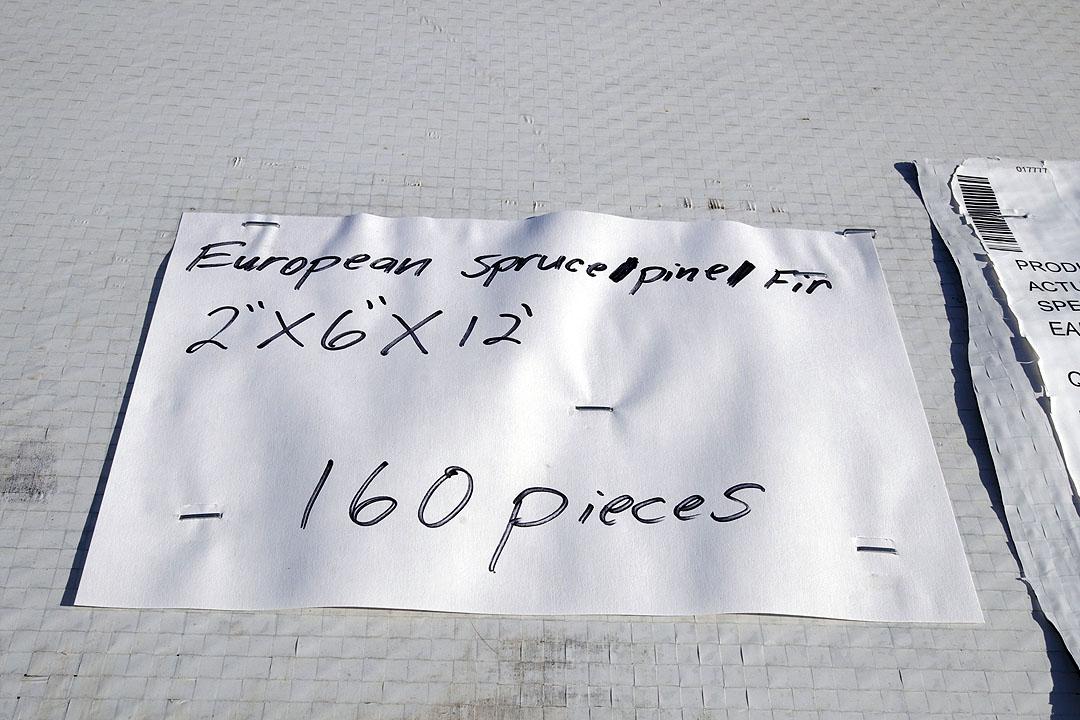 European spruce/pine/Fir
2"X6"X12'
160 pieces
017777
PRODU
ACTU
SPE
EA
Q